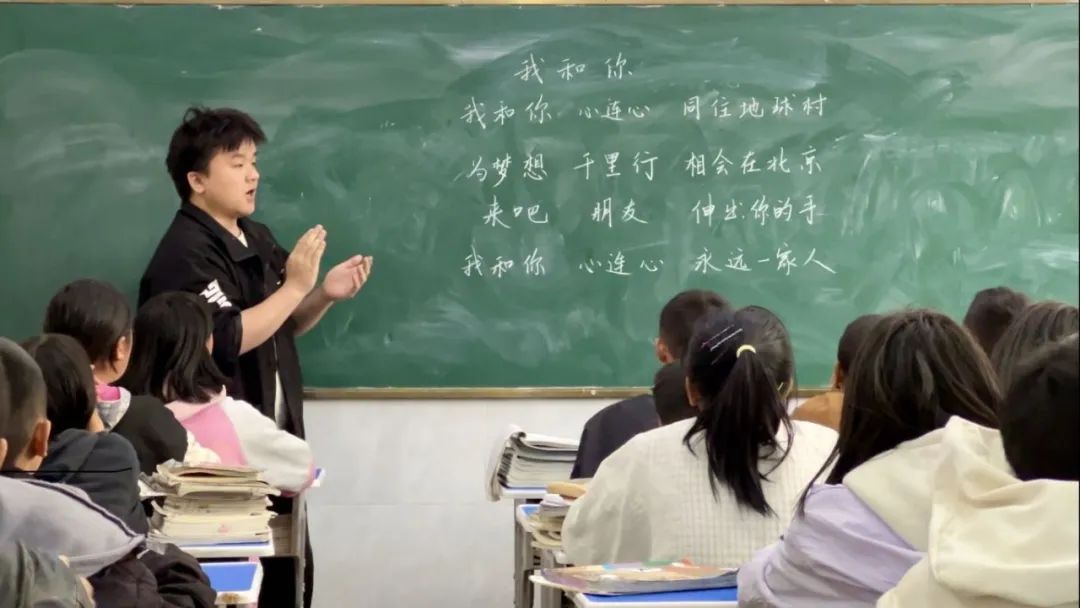 我和你
我和你 心连心 同住地球村
为梦想 千里行 相会在北京
来吧 朋友 伸出你的手
我和你 心连心 永远一家人